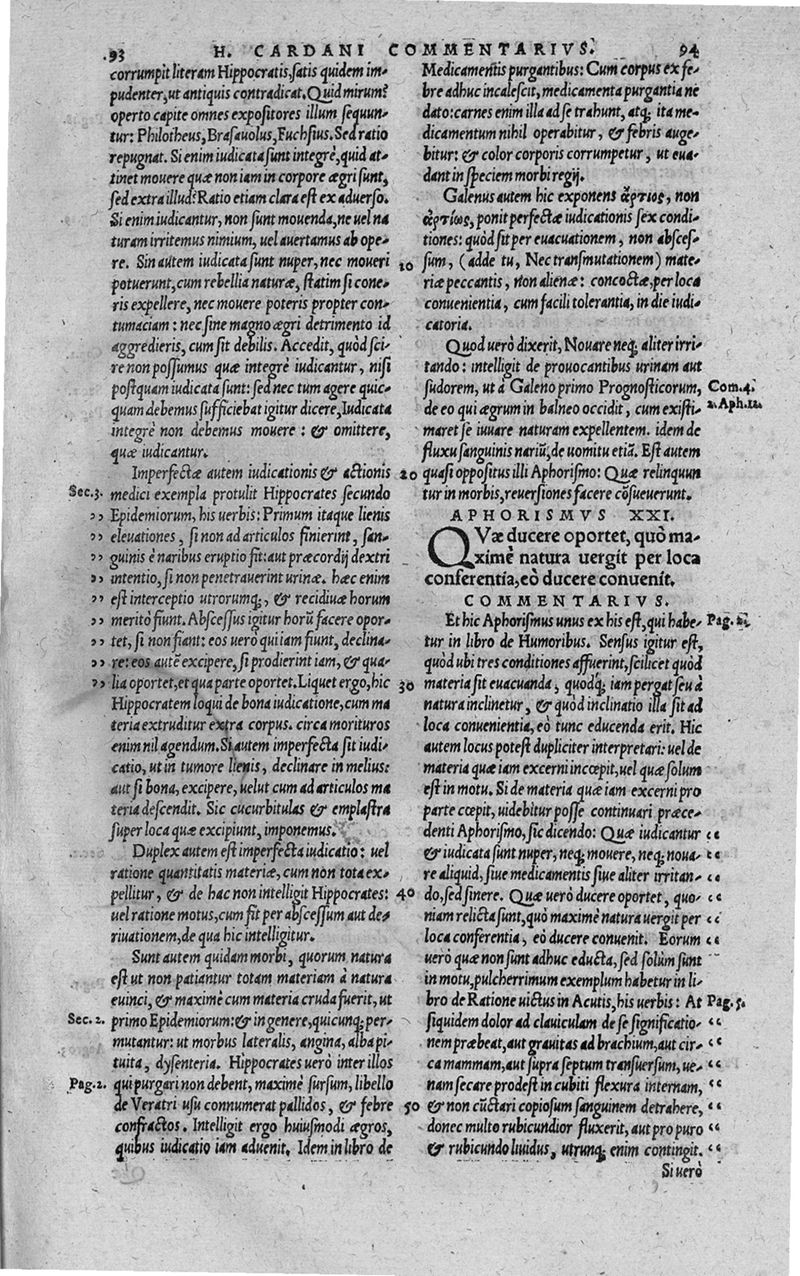 93 H. CARDANI COMMENTARIVS. 94
corrumpit literam Hippocratis, satis quidem im-
pudenter, ut antiquis contradicat. Quid mirum?
operto capite omnes expositores illum sequun-
tur: Philotheus, Brasauolus, Fuchsius. Sed ratio
repugnat. Si enim iudicata sunt integrè, quid at-
tinet mouere quæ non iam in corpore ægri sunt,
sed extra illud? Ratio etiam clara est ex aduerso.
Si enim iudicantur, non sunt mouenda, ne uel na
turam irritemus nimium, uel auertamus ab ope-
re. Sin autem iudicata sunt nuper, nec moueri
potuerunt, cum rebellia naturæ, statim si cone-
ris expellere, nec mouere poteris propter con-
tumaciam: nec sine magno ægri detrimento id
aggredieris, cum sit debilis. Accedit, quòd sci-
re non possumus quæ integrè iudicantur, nisi
postquam iudicata sunt: sed nec tum agere quic-
quam debemus sufficiebat igitur dicere, Iudicata
integrè non debemus mouere: & omittere,
quæ iudicantur.
Imperfectæ autem iudicationis & actionis
Sec.3. medici exempla protulit Hippocrates secundo
,, Epidemiorum, his uerbis: Primum itaque lienis
,, eleuationes, si non ad articulos finierint, san-
,, guinis è naribus eruptio fit: aut præcordij dextri
,, intentio, si non penetrauerint urinæ. hæc enim
,, est interceptio utrorumq;, & recidiuæ horum
,, meritò fiunt. Abscessus igitur horũ facere opor-
,, tet, si non fiant: eos uerò qui iam fiunt, declina-
,, re: eos autẽ excipere, si prodierint iam, & qua-
,, lia oportet, et qua parte oportet. Liquet ergo, hic
Hippocratem loqui de bona iudicatione, cum ma
teria extruditur extra corpus. circa morituros
enim nil agendum. Si autem imperfecta sit iudi-
catio, ut in tumore lienis, declinare in melius:
aut si bona, excipere, uelut cum ad articulos ma
teria descendit. Sic cucurbitulas & emplastra
super loca quæ excipiunt, imponemus.
Duplex autem est imperfecta iudicatio: uel
ratione quantitatis materiæ, cum non tota ex-
pellitur, & de hac non intelligit Hippocrates:
uel ratione motus, cum fit per abscessum aut de-
riuationem, de qua hic intelligitur.
Sunt autem quidam morbi, quorum natura
est ut non patiantur totam materiam à natura
euinci, & maximè cum materia cruda fuerit, ut
Sec.2. primo Epidemiorum: & in genere, quicunq; per-
mutantur: ut morbus lateralis, angina, alba pi-
tuita, dysenteria. Hippocrates uerò inter illos
Pag.2. qui purgari non debent, maximè sursum, libello
de Veratri usu connumerat pallidos, & febre
confractos. Intelligit ergo huiusmodi ægros,
quibus iudicatio iam aduenit. Idem in libro de
Medicamentis purgantibus: Cum corpus ex fe-
bre adhuc incalescit, medicamenta purgantia ne
dato: carnes enim illa ad se trahunt, atq; ita me-
dicamentum nihil operabitur, & febris auge-
bitur: & color corporis corrumpetur, ut eua-
dant in speciem morbi regij.
Galenus autem hic exponens ἄρτιος, non
ἀρτίως, ponit perfectæ iudicationis sex condi-
tiones: quòd sit per euacuationem, non absces-
10 sum, (adde tu, Nec transmutationem) mate-
riæ peccantis, non alienæ: concoctæ, per loca
conuenientia, cum facili tolerantia, in die iudi-
catoria.
Quod uerò dixerit, Nouare neq; aliter irri-
tando: intelligit de prouocantibus urinam aut
sudorem, ut à Galeno primo Prognosticorum, Com.4.
de eo qui ægrum in balneo occidit, cum existi-
maret se iuuare naturam expellentem. idem de
fluxu sanguinis nariũ, de uomitu etiã. Est autem
20 quasi oppositus illi Aphorismo: Quæ relinquun
tur in morbis, reuersiones facere cõsueuerunt.
APHORISMVS XXI.
QVæ ducere oportet, quò ma-
ximè natura uergit per loca
conferentia, eò ducere conuenit.
COMMENTARIVS.
Et hic Aphorismus unus ex his est, qui habe- Pag.
tur in libro de Humoribus. Sensus igitur est,
quòd ubi tres conditiones affuerint, scilicet quòd
30 materia sit euacuanda, quodq; iam pergat seu à
natura inclinetur, & quòd inclinatio illa sit ad
loca conuenientia, eò tunc educenda erit. Hic
autem locus potest dupliciter interpretari: uel de
materia quæ iam excerni incœpit, uel quæ solum
est in motu. Si de materia quæ iam excerni pro
parte cœpit, uidebitur posse continuari præce-
denti Aphorismo, sic dicendo: Quæ iudicantur ‘‘
& iudicata sunt nuper, neq; mouere, neq; noua- ‘‘
re aliquid, siue medicamentis siue aliter irritan- ‘‘
40 do, sed sinere. Quæ uerò ducere oportet, quo- ‘‘
niam relicta sunt, quò maximè natura uergit per ‘‘
loca conferentia, eò ducere conuenit. Eorum ‘‘
uerò quæ non sunt adhuc educta, sed solùm sunt
in motu, pulcherrimum exemplum habetur in li-
bro de Ratione uictus in Acutis, his uerbis: At Pag.5.
siquidem dolor ad clauiculam de se significatio- ‘‘
nem præbeat, aut grauitas ad brachium, aut cir- ‘‘
ca mammam, aut supra septum transuersum, ue- ‘‘
nam secare prodest in cubiti flexura internam, ‘‘
50 & non cũctari copiosum sanguinem detrahere, ‘‘
donec multo rubicundior fluxerit, aut pro puro ‘‘
& rubicundo liuidus, utrunq; enim contingit. ‘‘
Si uerò